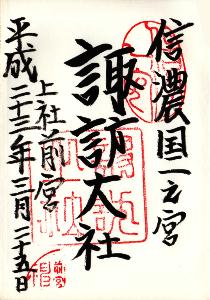 信濃国一之宮
諏訪大社
上社前宮
平成二十二年三月二十五日